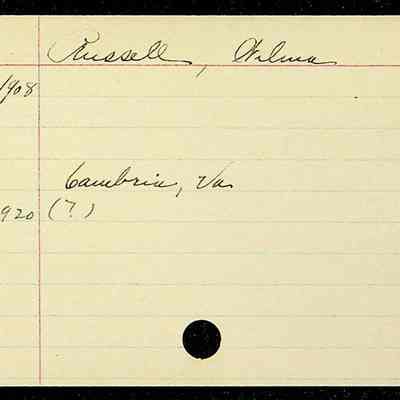 Russell, Wilma
1908
Cambria, Va
1920 (?)